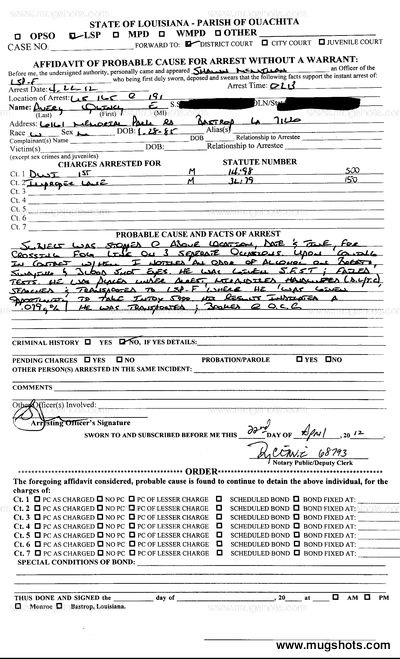 STATE OF LOUISIANA - PARISH OF OUACHITA
OPSO LSP MPD WMPD OTHER
CASE NO. FORWARD TO: DISTRICT COURT CITY COURT JUVENILE COURT
AFFIDAVIT OF PROBABLE CAUSE FOR ARREST WITHOUT A WARRANT:
Before me, the undersigned authority, personally came and appeared an Officer of the
LSP-F who being first duly sworn, deposed and swears that the following facts support the instant arrest of:
Arrest Date: 4-22-12 Arrest Time:
Location of Arrest: US 165 @
Name: Avery E S.S. DLN/State
(Last) (First) (MI)
Address: Memorial Park Rd Bastrop LA
Race Sex DOB: Alias(s)
Complainant(s) Name DOB: Relationship to Arrestee
Victim(s) DOB: Relationship to Arrestee
(except sex crimes and juveniles)
CHARGES ARRESTED FOR STATUTE NUMBER
Ct. 1 DWI 1st M 14:98 500
Ct. 2 Improper Lane M 150
Ct. 3
Ct. 4
Ct. 5
Ct. 6
Ct. 7
PROBABLE CAUSE AND FACTS OF ARREST
Subject was stopped @ above location, date & time, for
crossing fog line on 3 separate occasions. Upon coming
in contact w/him I noticed an odor of alcohol on breath,
swaying & blood shot eyes. He was given S.F.S.T & failed
tests. He was placed under arrest,
searched & transported to LSP-F where he was given
opportunity to take Intox 5000 his results indicated a
.019 g% He was transported & booked @ O.C.C.
CRIMINAL HISTORY YES NO, IF YES DETAILS:
PENDING CHARGES YES NO PROBATION/PAROLE YES NO
OTHER PERSON(S) ARRESTED IN THE SAME INCIDENT:
COMMENTS
Other Officer(s) Involved:
Arresting Officer's Signature
SWORN TO AND SUBSCRIBED BEFORE ME THIS 22nd DAY OF April, 2012.
68793
Notary Public/Deputy Clerk
ORDER
The foregoing affidavit considered, probable cause is found to continue to detain the above individual, for the
charges of:
Ct. 1 PC AS CHARGED NO PC PC OF LESSER CHARGE SCHEDULED BOND BOND FIXED AT:
Ct. 2 PC AS CHARGED NO PC PC OF LESSER CHARGE SCHEDULED BOND BOND FIXED AT:
Ct. 3 PC AS CHARGED NO PC PC OF LESSER CHARGE SCHEDULED BOND BOND FIXED AT:
Ct. 4 PC AS CHARGED NO PC PC OF LESSER CHARGE SCHEDULED BOND BOND FIXED AT:
Ct. 5 PC AS CHARGED NO PC PC OF LESSER CHARGE SCHEDULED BOND BOND FIXED AT:
Ct. 6 PC AS CHARGED NO PC PC OF LESSER CHARGE SCHEDULED BOND BOND FIXED AT:
Ct. 7 PC AS CHARGED NO PC PC OF LESSER CHARGE SCHEDULED BOND BOND FIXED AT:
SPECIAL CONDITIONS OF BOND:
THUS DONE AND SIGNED the day of , 20 at AM PM
Monroe Bastrop, Louisiana.
www.mugshots.com